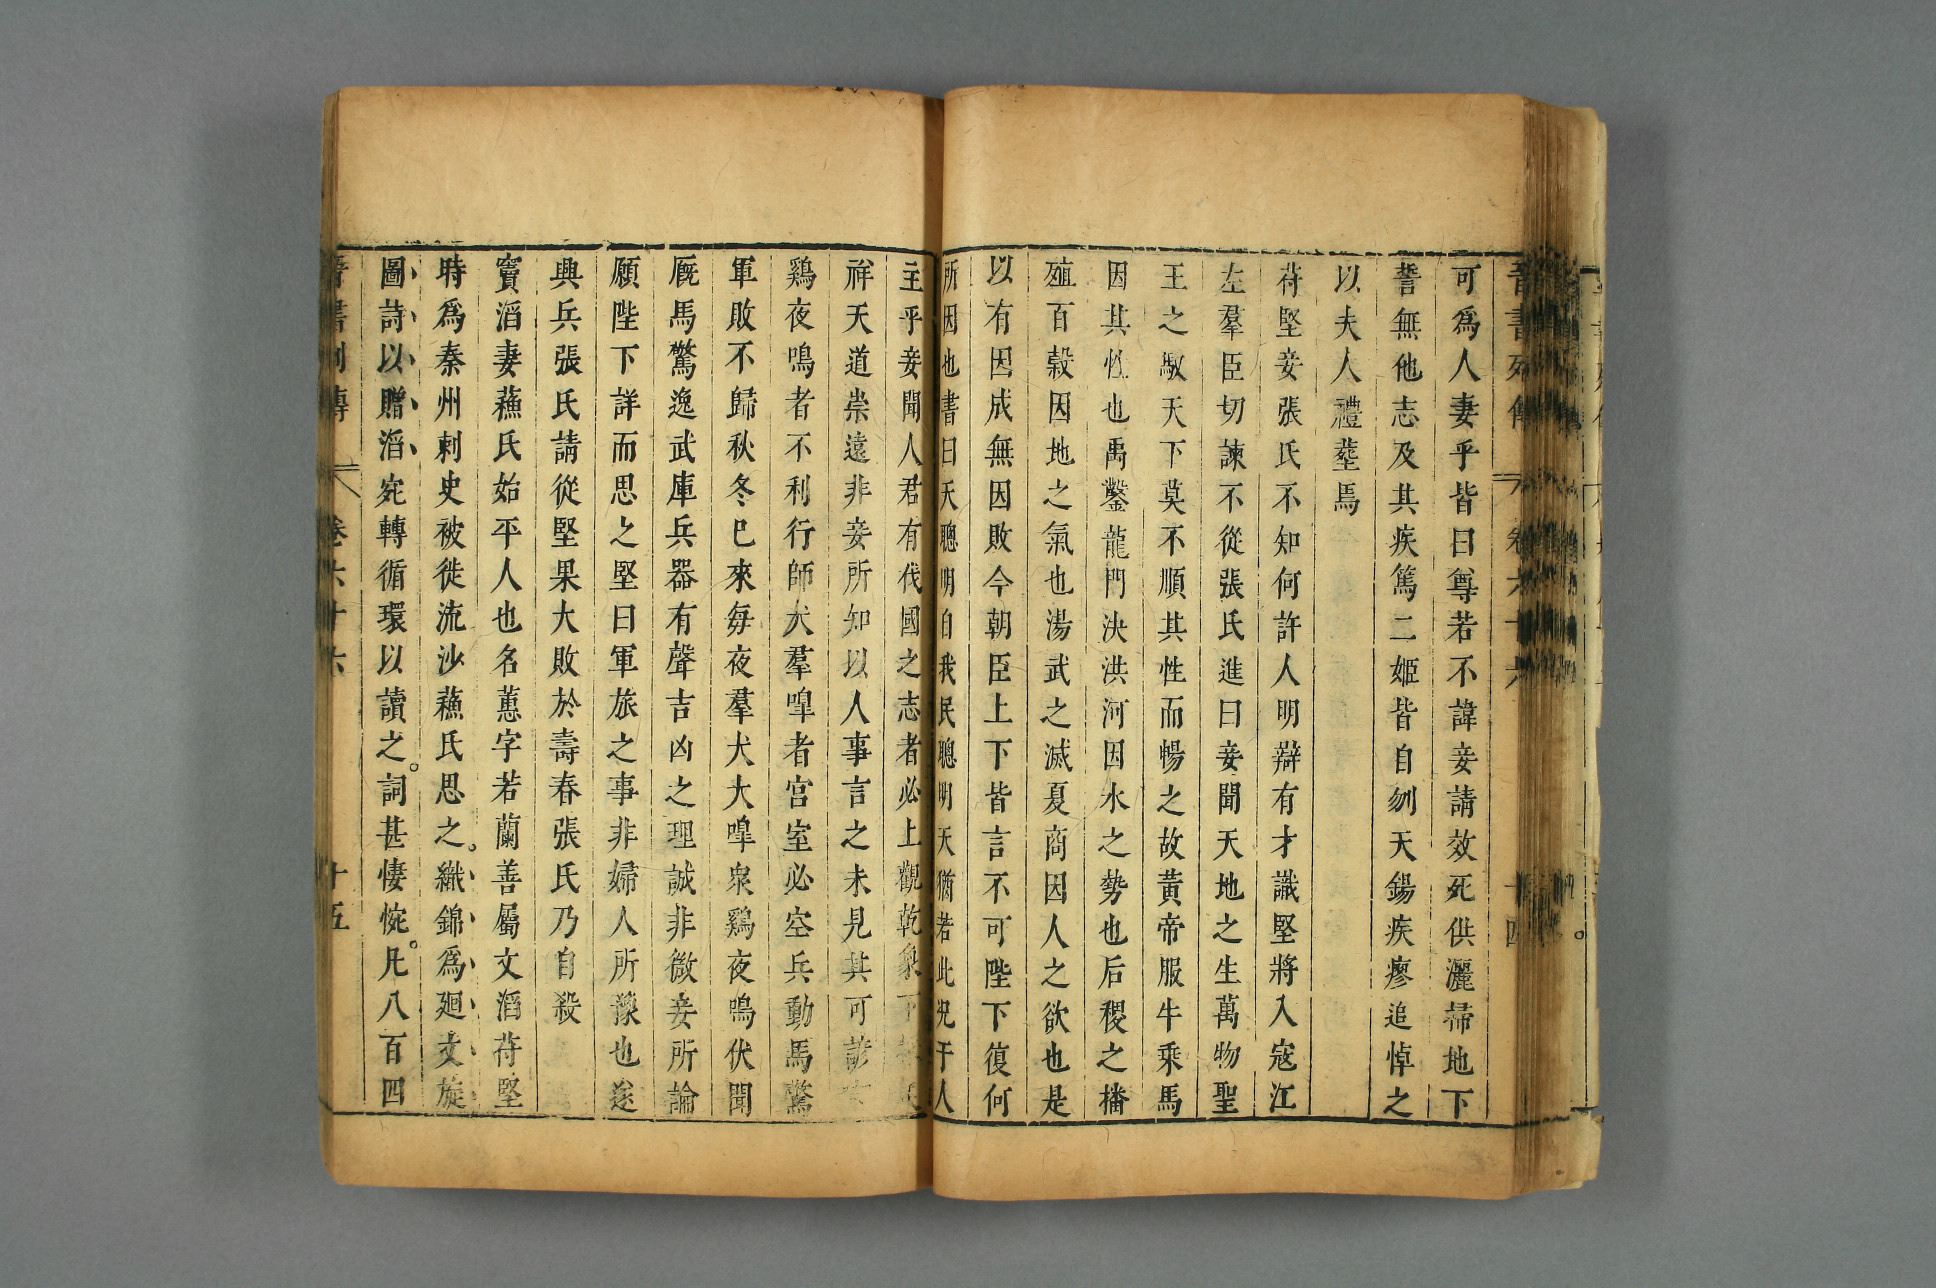 晉書列傳 卷六十六 十四
可爲人妻乎皆曰尊若不諱妾請效死供灑掃地下
誓無他志及其疾篤二姬皆自刎天錫疾瘳追悼之
以夫人禮塟焉
苻堅妾張氏不知何許人明辯有才識堅將入寇江
左羣臣切諫不從張氏進曰妾聞天地之生萬物聖
王之馭天下莫不順其性而暢之故黃帝服牛乘馬
因其性也禹鑿龍門決洪河因水之勢也后稷之播
殖百穀因地之氣也湯武之滅夏商因人之欲也是
以有因成無因敗今朝臣上下皆言不可陛下復何
所因也書曰天聰明自我民聰明天猶若此況于人
主乎妾聞人君有伐國之志者必上觀乾象下
祥天道崇遠非妾所知以人事言之未見其可諺
鷄夜鳴者不利行師犬羣嘷者宫室必空兵動馬驚
軍敗不歸秋冬巳來每夜羣犬大嘷衆鷄夜鳴伏聞
廐馬驚逸武庫兵器有聲吉凶之理誠非微妾所論
願陛下詳而思之堅曰軍旅之事非婦人所豫也遂
興兵張氏請從堅果大敗於壽春張氏乃自殺
竇滔妻蘓氏始平人也名蕙字若蘭善屬文滔苻堅
時爲秦州刺史被徙流沙蘓氏思之。織錦爲廻文旋
圖詩以贈滔宛轉循環以讀之。詞甚悽惋。凡八百四
晉書列傳 卷六十六 十五